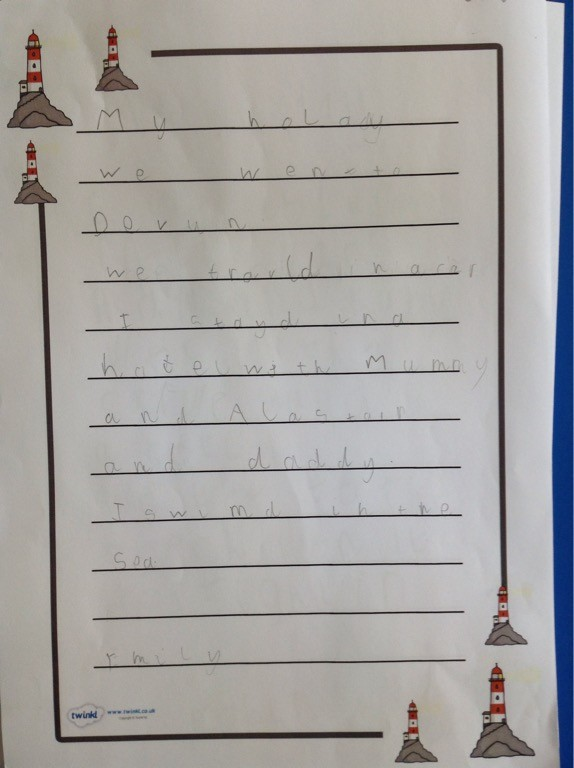 My holady
we went to
Dovun
we travld in a car
I stayd in a
hotel with Mummy
and Alastair
and daddy.
I swimd in the
sea
Emily
twinkl www.twinkl.co.uk